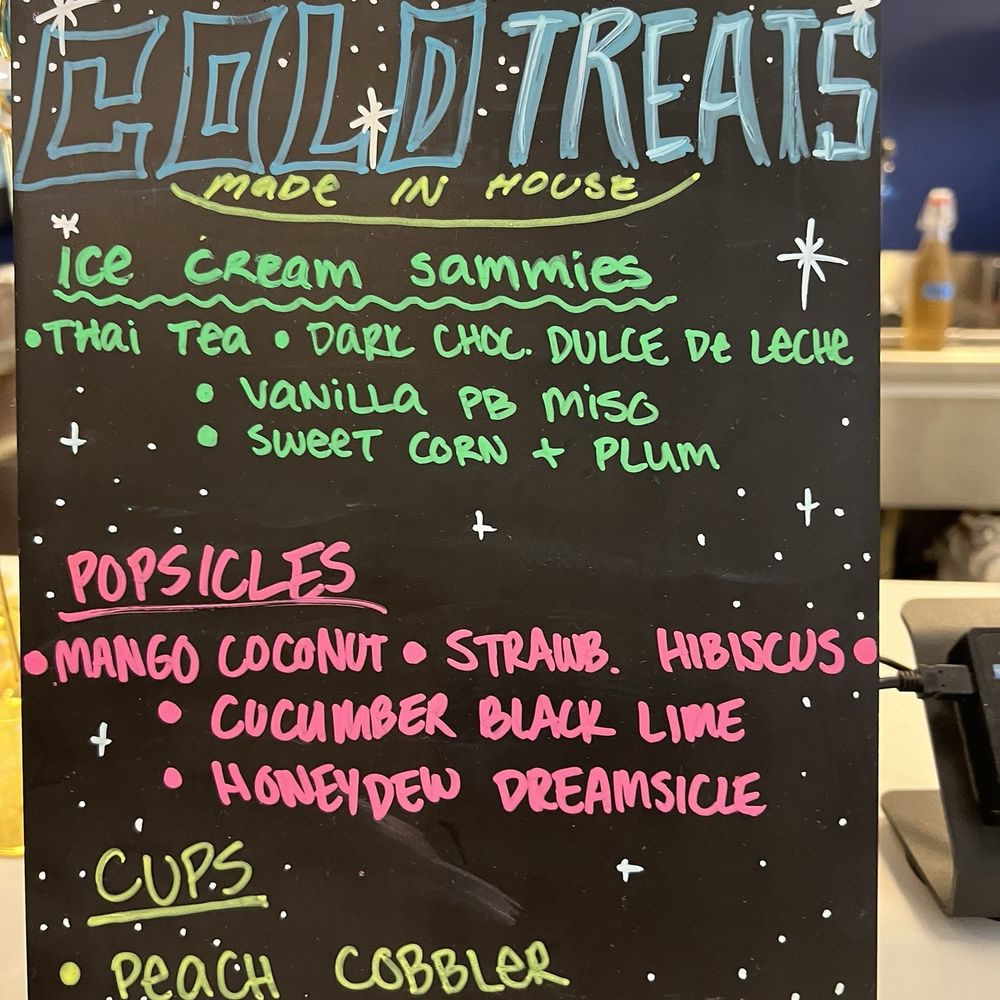 COLD TREATS
MADE IN HOUSE
ICE CREAM SAMMIES
• THAI TEA • DARK CHOC. DULCE DE LECHE
• VANILLA PB MISO
• SWEET CORN + PLUM
POPSICLES
• MANGO COCONUT • STRAWB. HIBISCUS •
• CUCUMBER BLACK LIME
• HONEYDEW DREAMSICLE
CUPS
• PEACH COBBLER